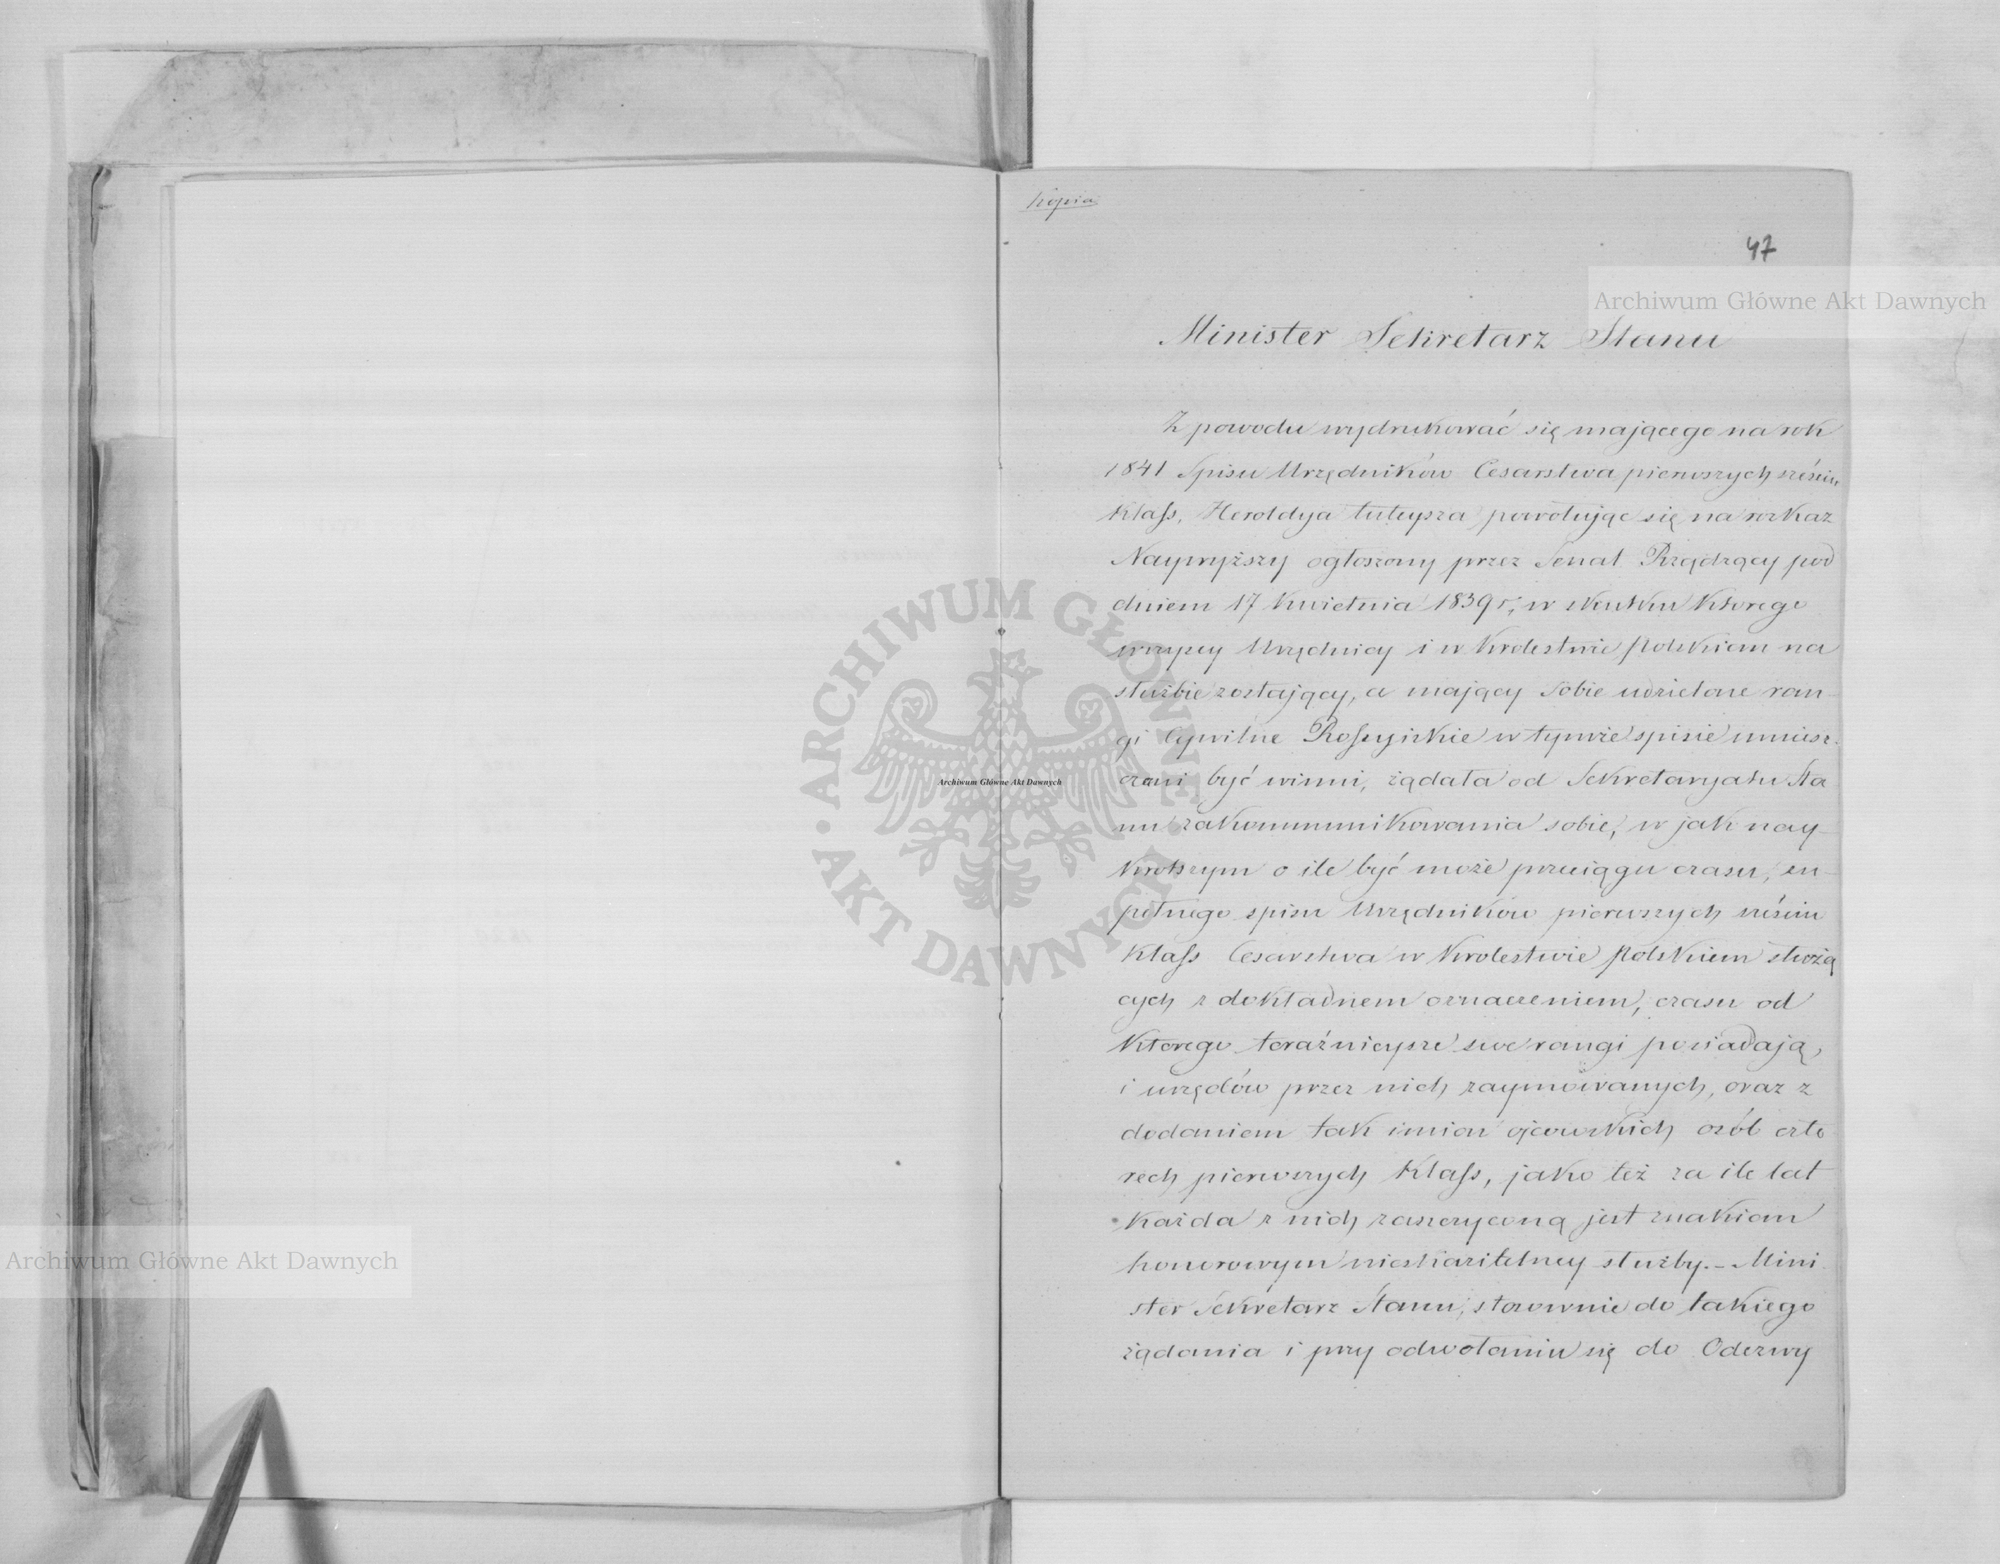 Kopia
47
Archiwum Główne Akt Dawnych
Minister Sekretarz Stanu
Z powodu wydrukować się mającego na rok
1841 Spisu Urzędników Cesarstwa pierwszych sześciu
Klass, Heroldya tuteysza powołując się na rozkaz
Naywyższy ogłoszony przez Senat Rządzący pod
dniem 17 Kwietnia 1839 r., w skutku Ktorego
wszyscy Urzędnicy i w Krolestwie Polskiem na
służbie zostający, a mający sobie udzielone ran-
gi Cywilne Rossyiskie w tymże spisie umiesz-
czeni być winni, żądała od Sekretaryatu Sta
nu zakommunikowania sobie, w jak nay-
krotszym o ile być może przeciągu czasu, zu-
pełnego spisu Urzędników pierwszych sześciu
Klass Cesarstwa w Krolestwie Polskiem służą
cych z dokładnem oznaczeniem, czasu od
Ktorego teraźnieysze swe rangi posiadają,
i urzędów przez nich zaymowanych, oraz z
dodaniem tak imion ojcowskich osób czte
rech pierwszych Klass, jako też za ile lat
Każda z nich zaszczyconą jest znakiem
honorowym nieskazitelney służby.- Mini
ster Sekretarz Stanu, stosownie do takiego
żądania i przy odwołaniu się do Odezwy
ARCHIWUM GŁÓWNE AKT DAWNYCH
Archiwum Główne Akt Dawnych
Archiwum Główne Akt Dawnych